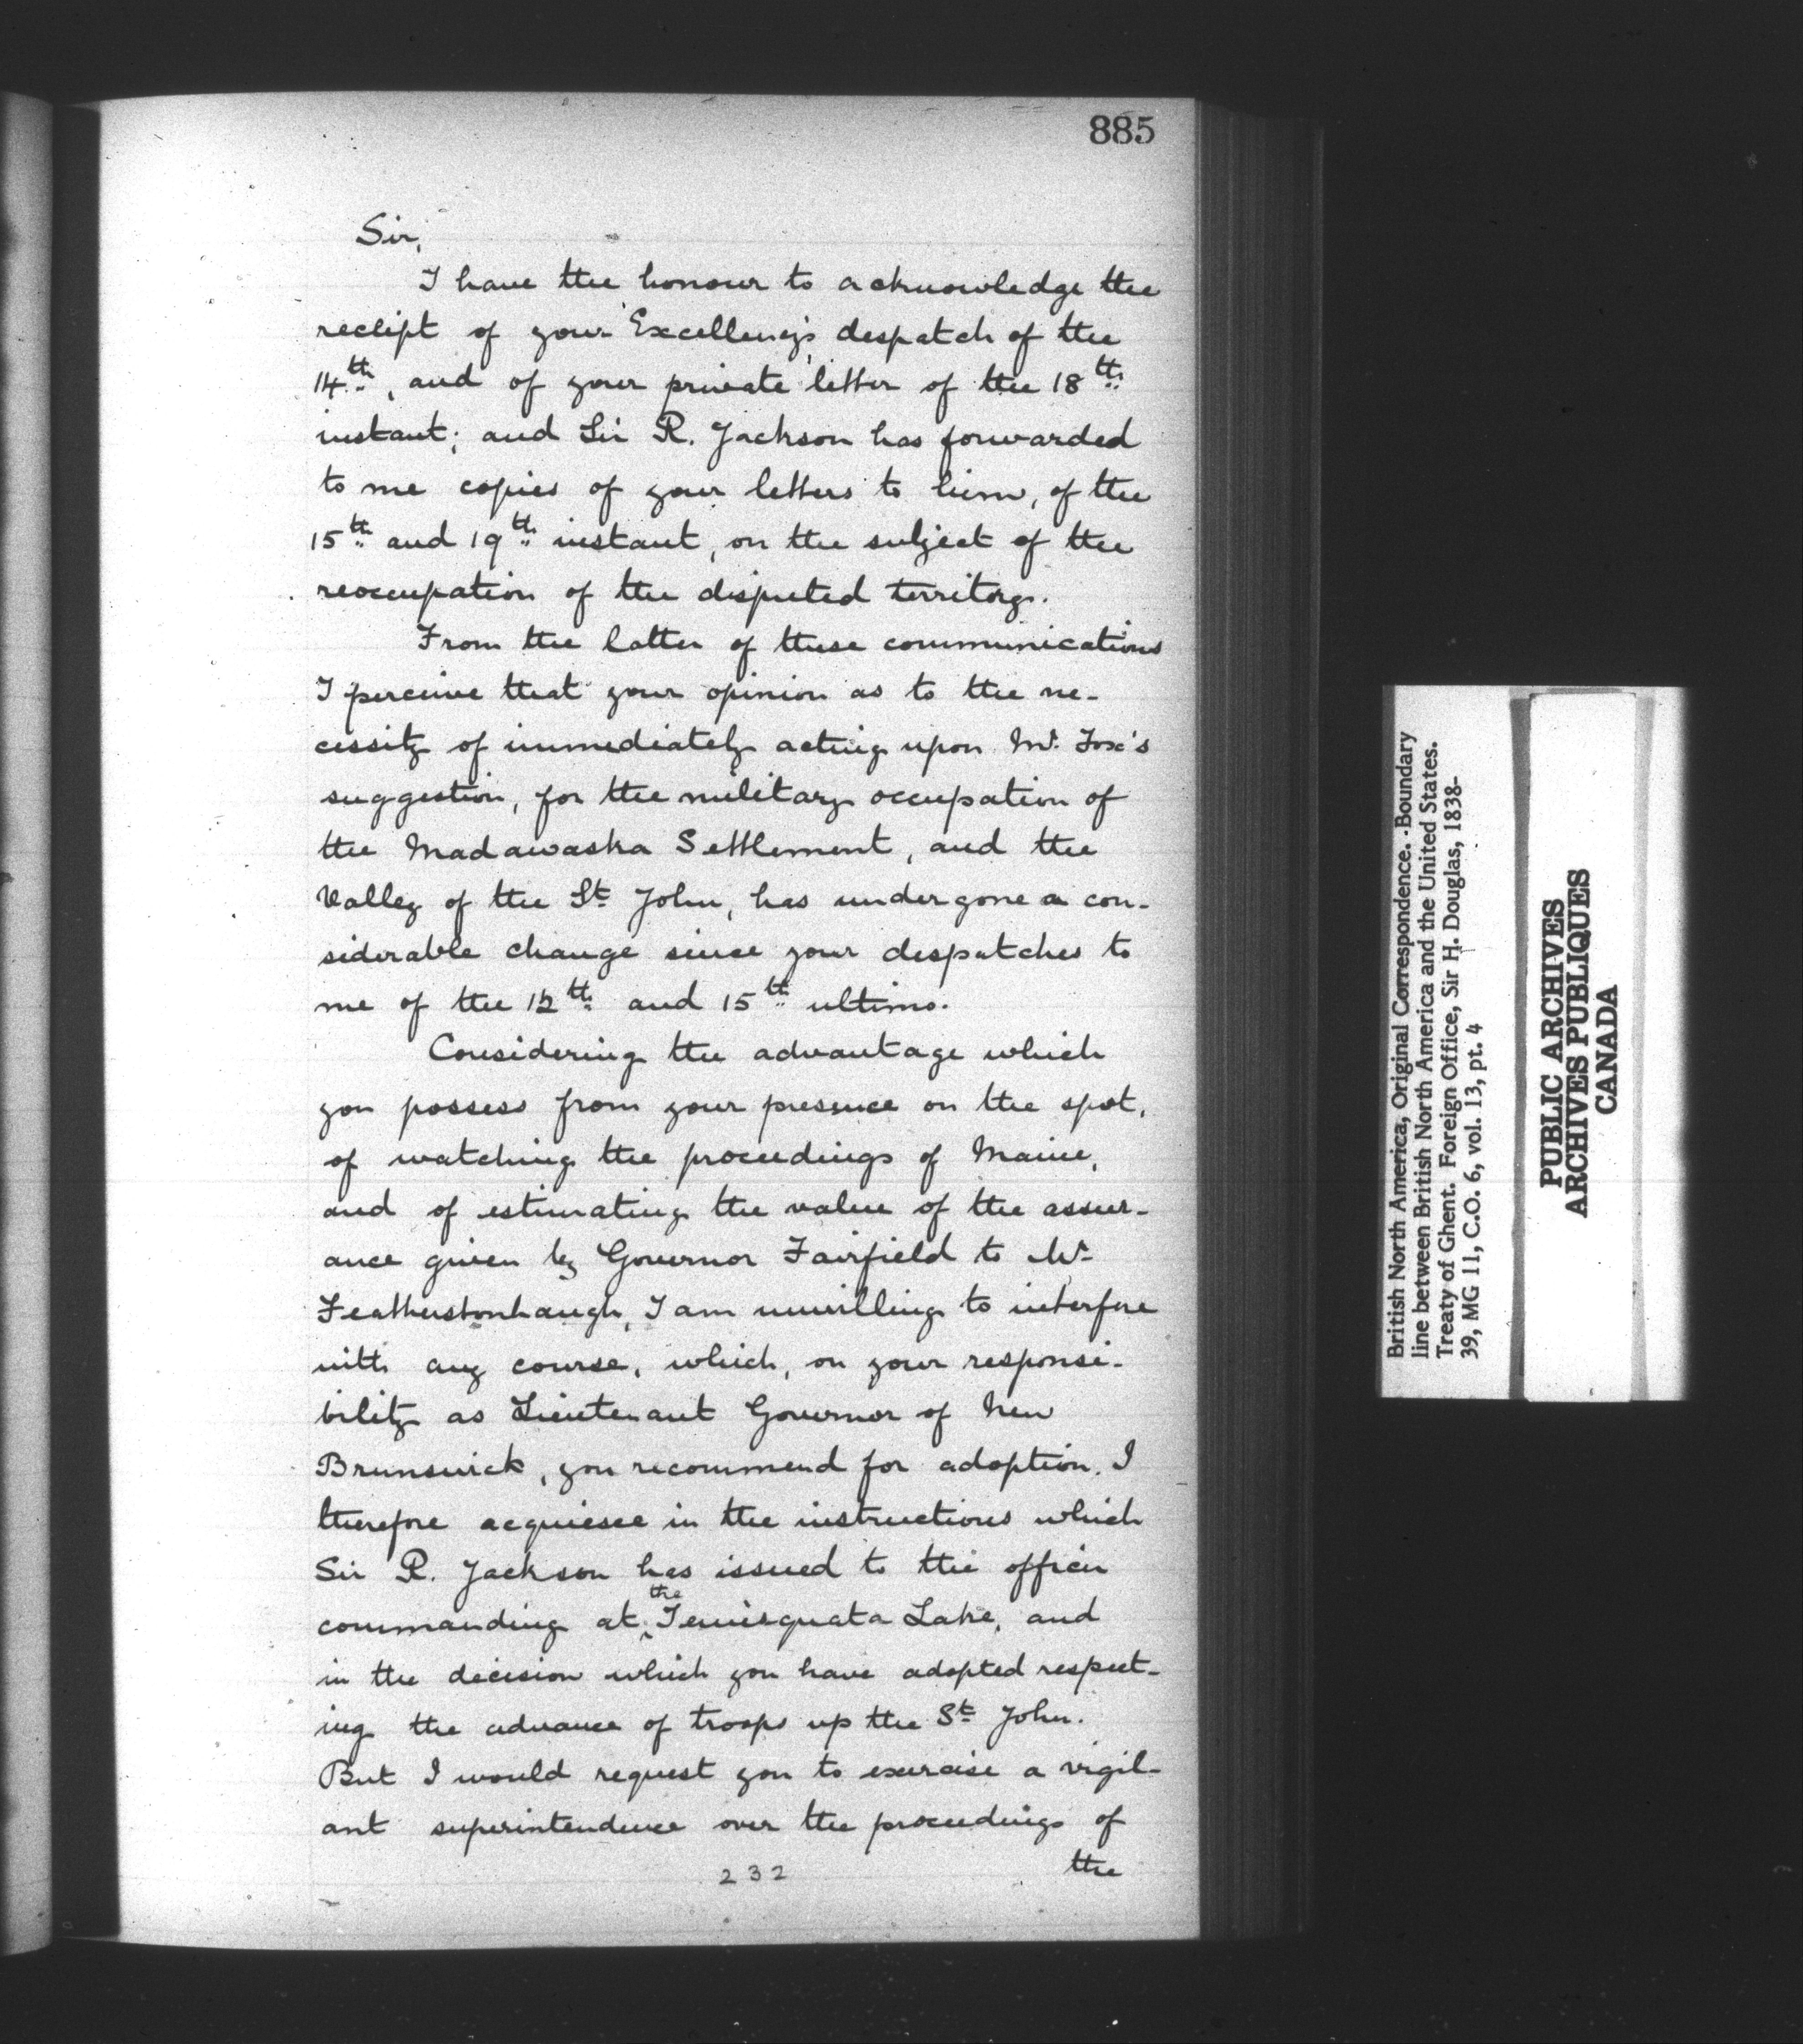 885
Sir,
I have the honour to acknowledge the
receipt of your Excellency's despatch of the
14th, and of your private letter of the 18th
instant; and Sir R. Jackson has forwarded
to me copies of your letters to him, of the
15th and 19th instant, on the subject of the
reoccupation of the disputed territory.
From the latter of these communications
I perceive that your opinion as to the ne-
cessity of immediately acting upon Mr. Fox's
suggestion, for the military occupation of
the Madawaska Settlement, and the
Valley of the St John, has undergone a con-
siderable change since your despatches to
me of the 12th and 15th ultimo.
Considering the advantage which
you possess from your presence on the spot,
of watching the proceedings of Maine,
and of estimating the value of the assur-
ance given by Governor Fairfield to Mr
Featherstonhaugh, I am unwilling to interfere
with any course, which, on your responsi-
bility as Lieutenant Governor of New
Brunswick, you recommend for adoption. I
therefore acquiesce in the instructions which
Sir R. Jackson has issued to the officer
commanding at the Temisquata Lake, and
in the decision which you have adopted respect-
ing the advance of troops up the St John.
But I would request you to exercise a vigil-
ant superintendence over the proceedings of
the
232
British North America, Original Correspondence. -Boundary
line between British North America and the United States.
Treaty of Ghent. Foreign Office, Sir H. Douglas, 1838-
39, MG 11, C.O. 6, vol. 13, pt. 4
PUBLIC ARCHIVES
ARCHIVES PUBLIQUES
CANADA